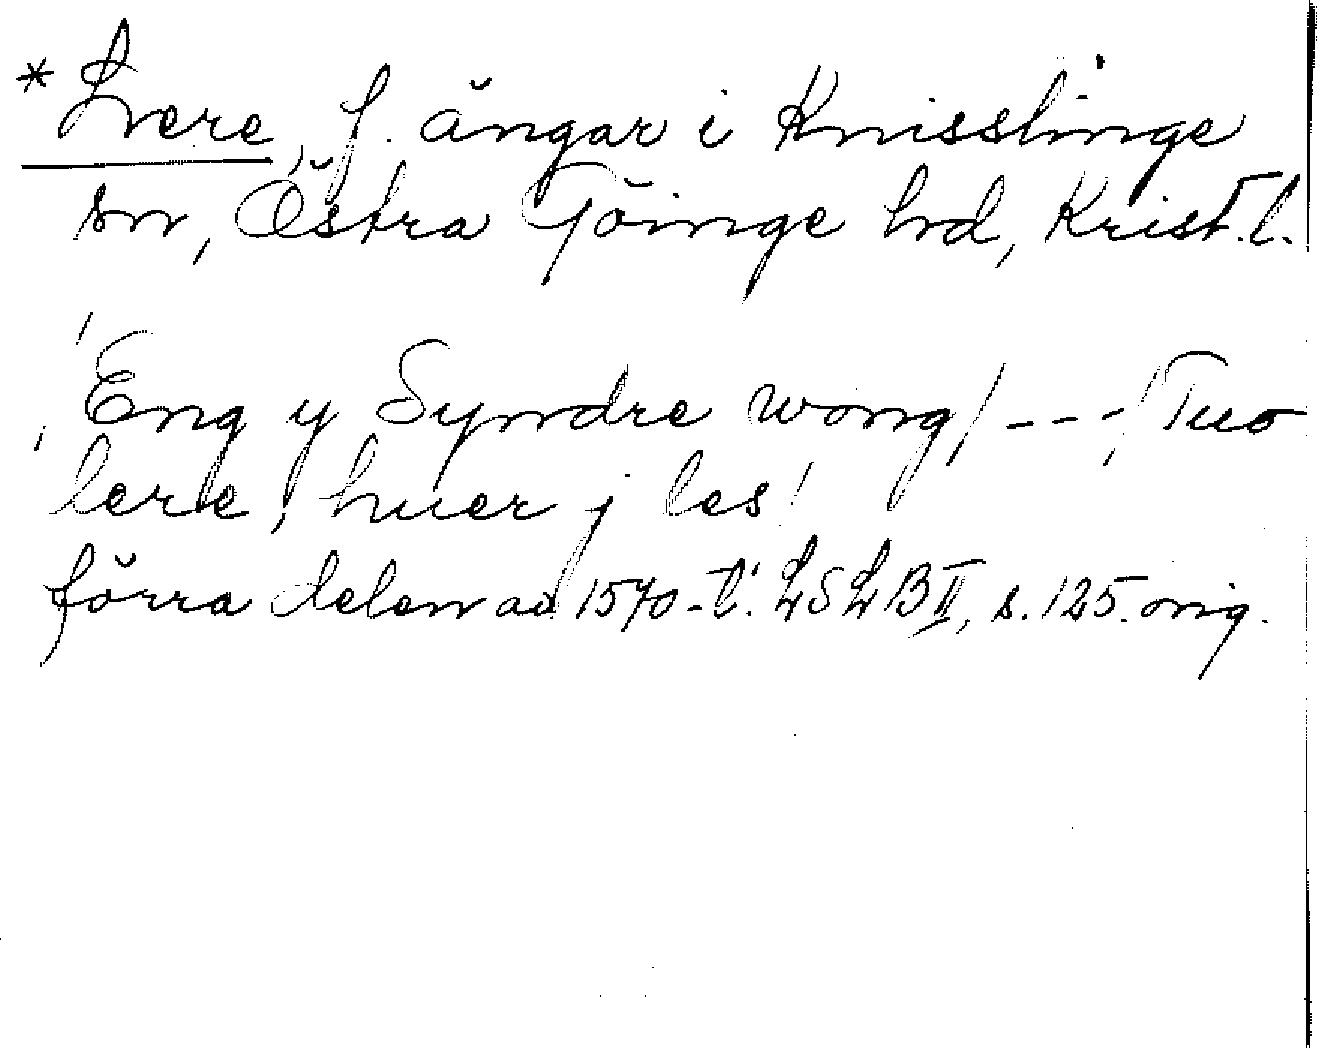 *Lvere, f. ängar i Knisslinge
sn, Östra Göinge hd, Krist.l.
'Eng y Syndre wong/---/Tuo
lere, huer j les'
förra delen av 1570-t. LSLB II, s. 125. orig.